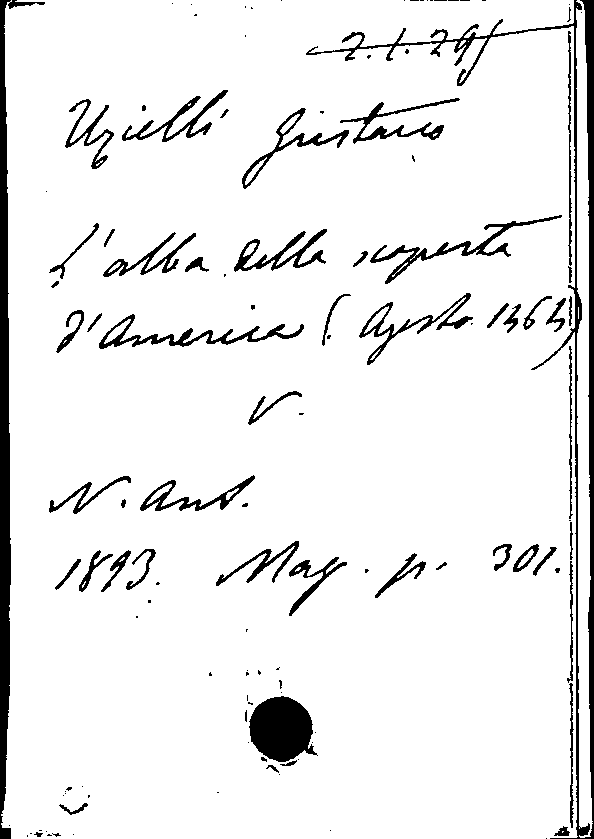 2.1.29
Uzielli Gustavo
L'alba della scoperta
d'America (Agosto 1464)
V.
N. Ant.
1893. Mag. p. 301.